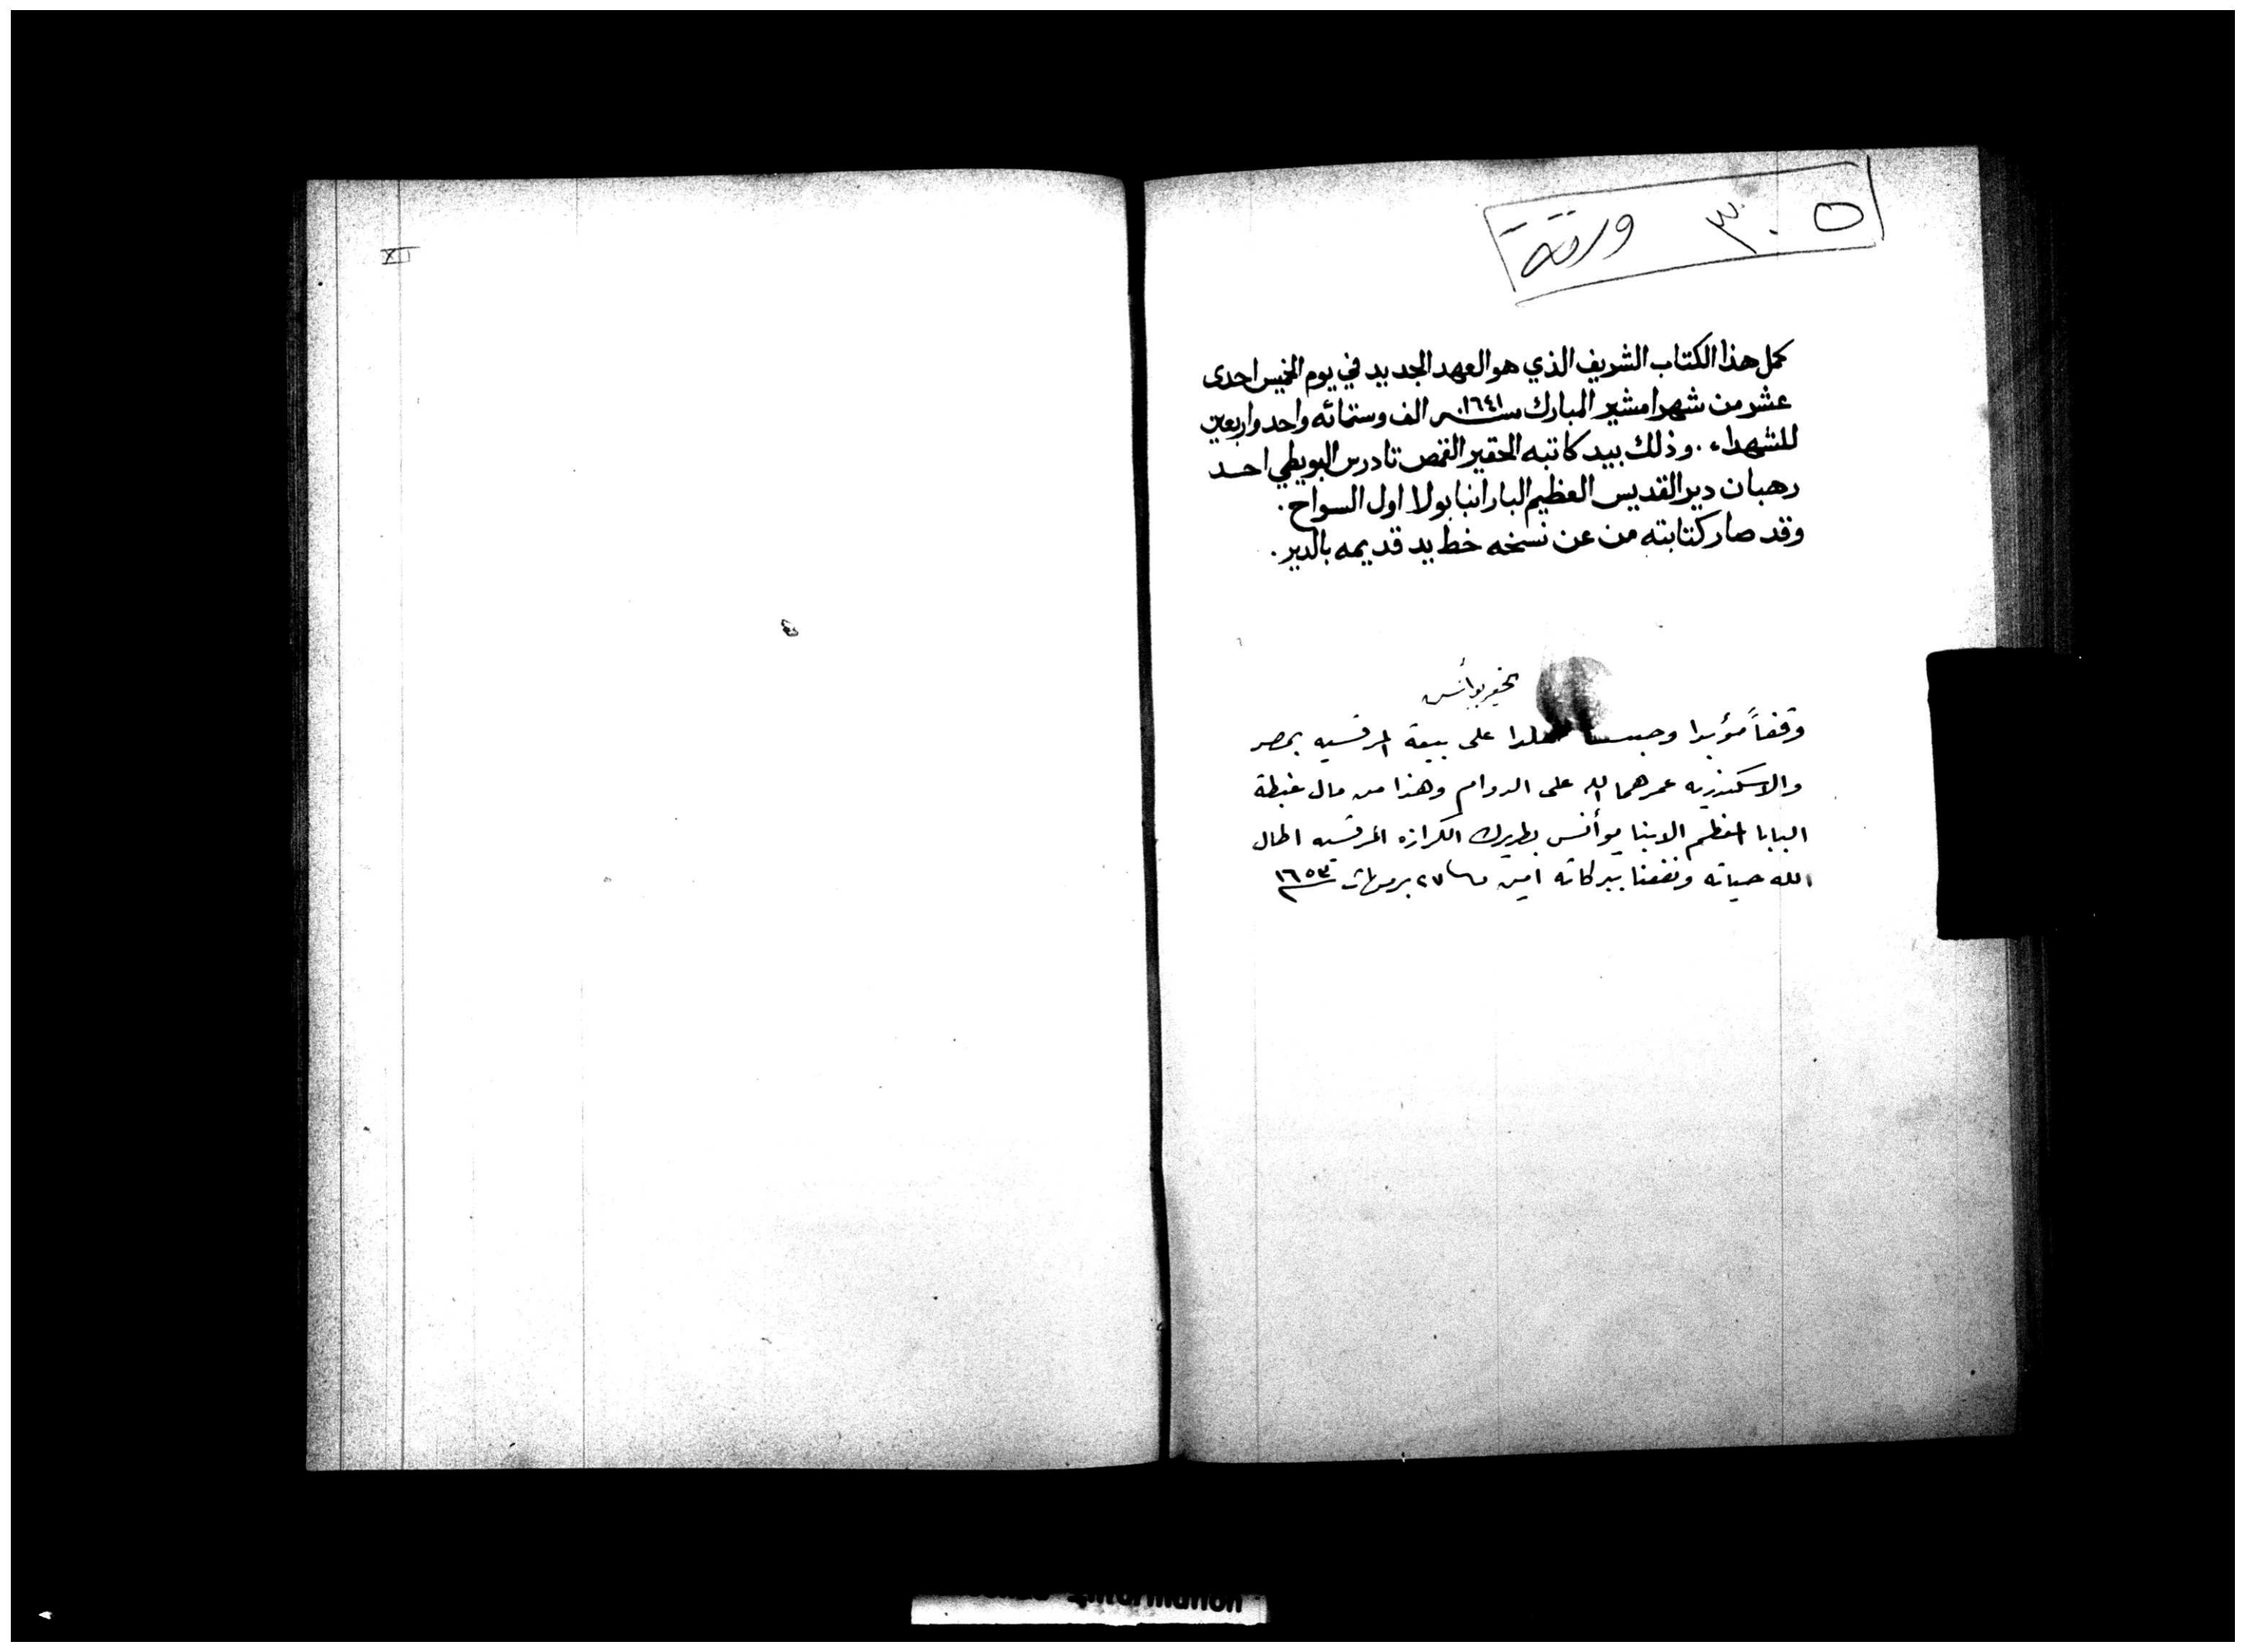 ٣٠٥ ورقة
كمل هذا الكتاب الشريف الذي هو العهد الجديد في يوم الخميس احدى
عشر من شهر امشير المبارك سنة ١٦٤١ الف وستمائه واحد واربعين
للشهداء . وذلك بيد كاتبه الحقير القمص تادرس البويطي احد
رهبان دير القديس العظيم البار انبا بولا اول السواح .
وقد صار كتابته من عن نسخه خط يد قديمه بالدير .
يوأنس
وقفاً مؤبدا وحبسا مخلدا على بيعة المرقسيه بمصر
والاسكندريه عمرهما الله على الدوام وهذا من مال غبطة
البابا المعظم الانبا يوأنس بطريرك الكرازه المرقسيه اطال
الله حياته ونفعنا ببركاته امين ٢٧ برمهات سنة ١٦٥٣
XII